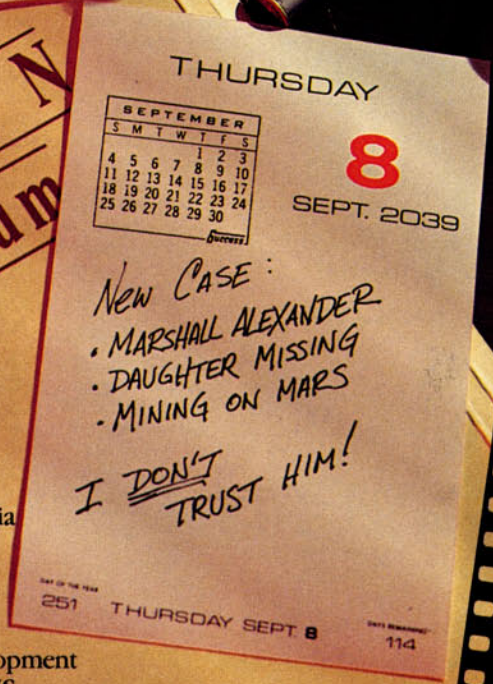 N
um
THURSDAY
SEPTEMBER
S M T W T F S
1 2 3
4 5 6 7 8 9 10
11 12 13 14 15 16 17
18 19 20 21 22 23 24
25 26 27 28 29 30
Success
8
SEPT. 2039
NEW CASE:
• MARSHALL ALEXANDER
• DAUGHTER MISSING
- MINING ON MARS
I DON'T
TRUST HIM!
ia
DAY OF THE YEAR
251
THURSDAY SEPT. 8
DAYS REMAINING
114
opment